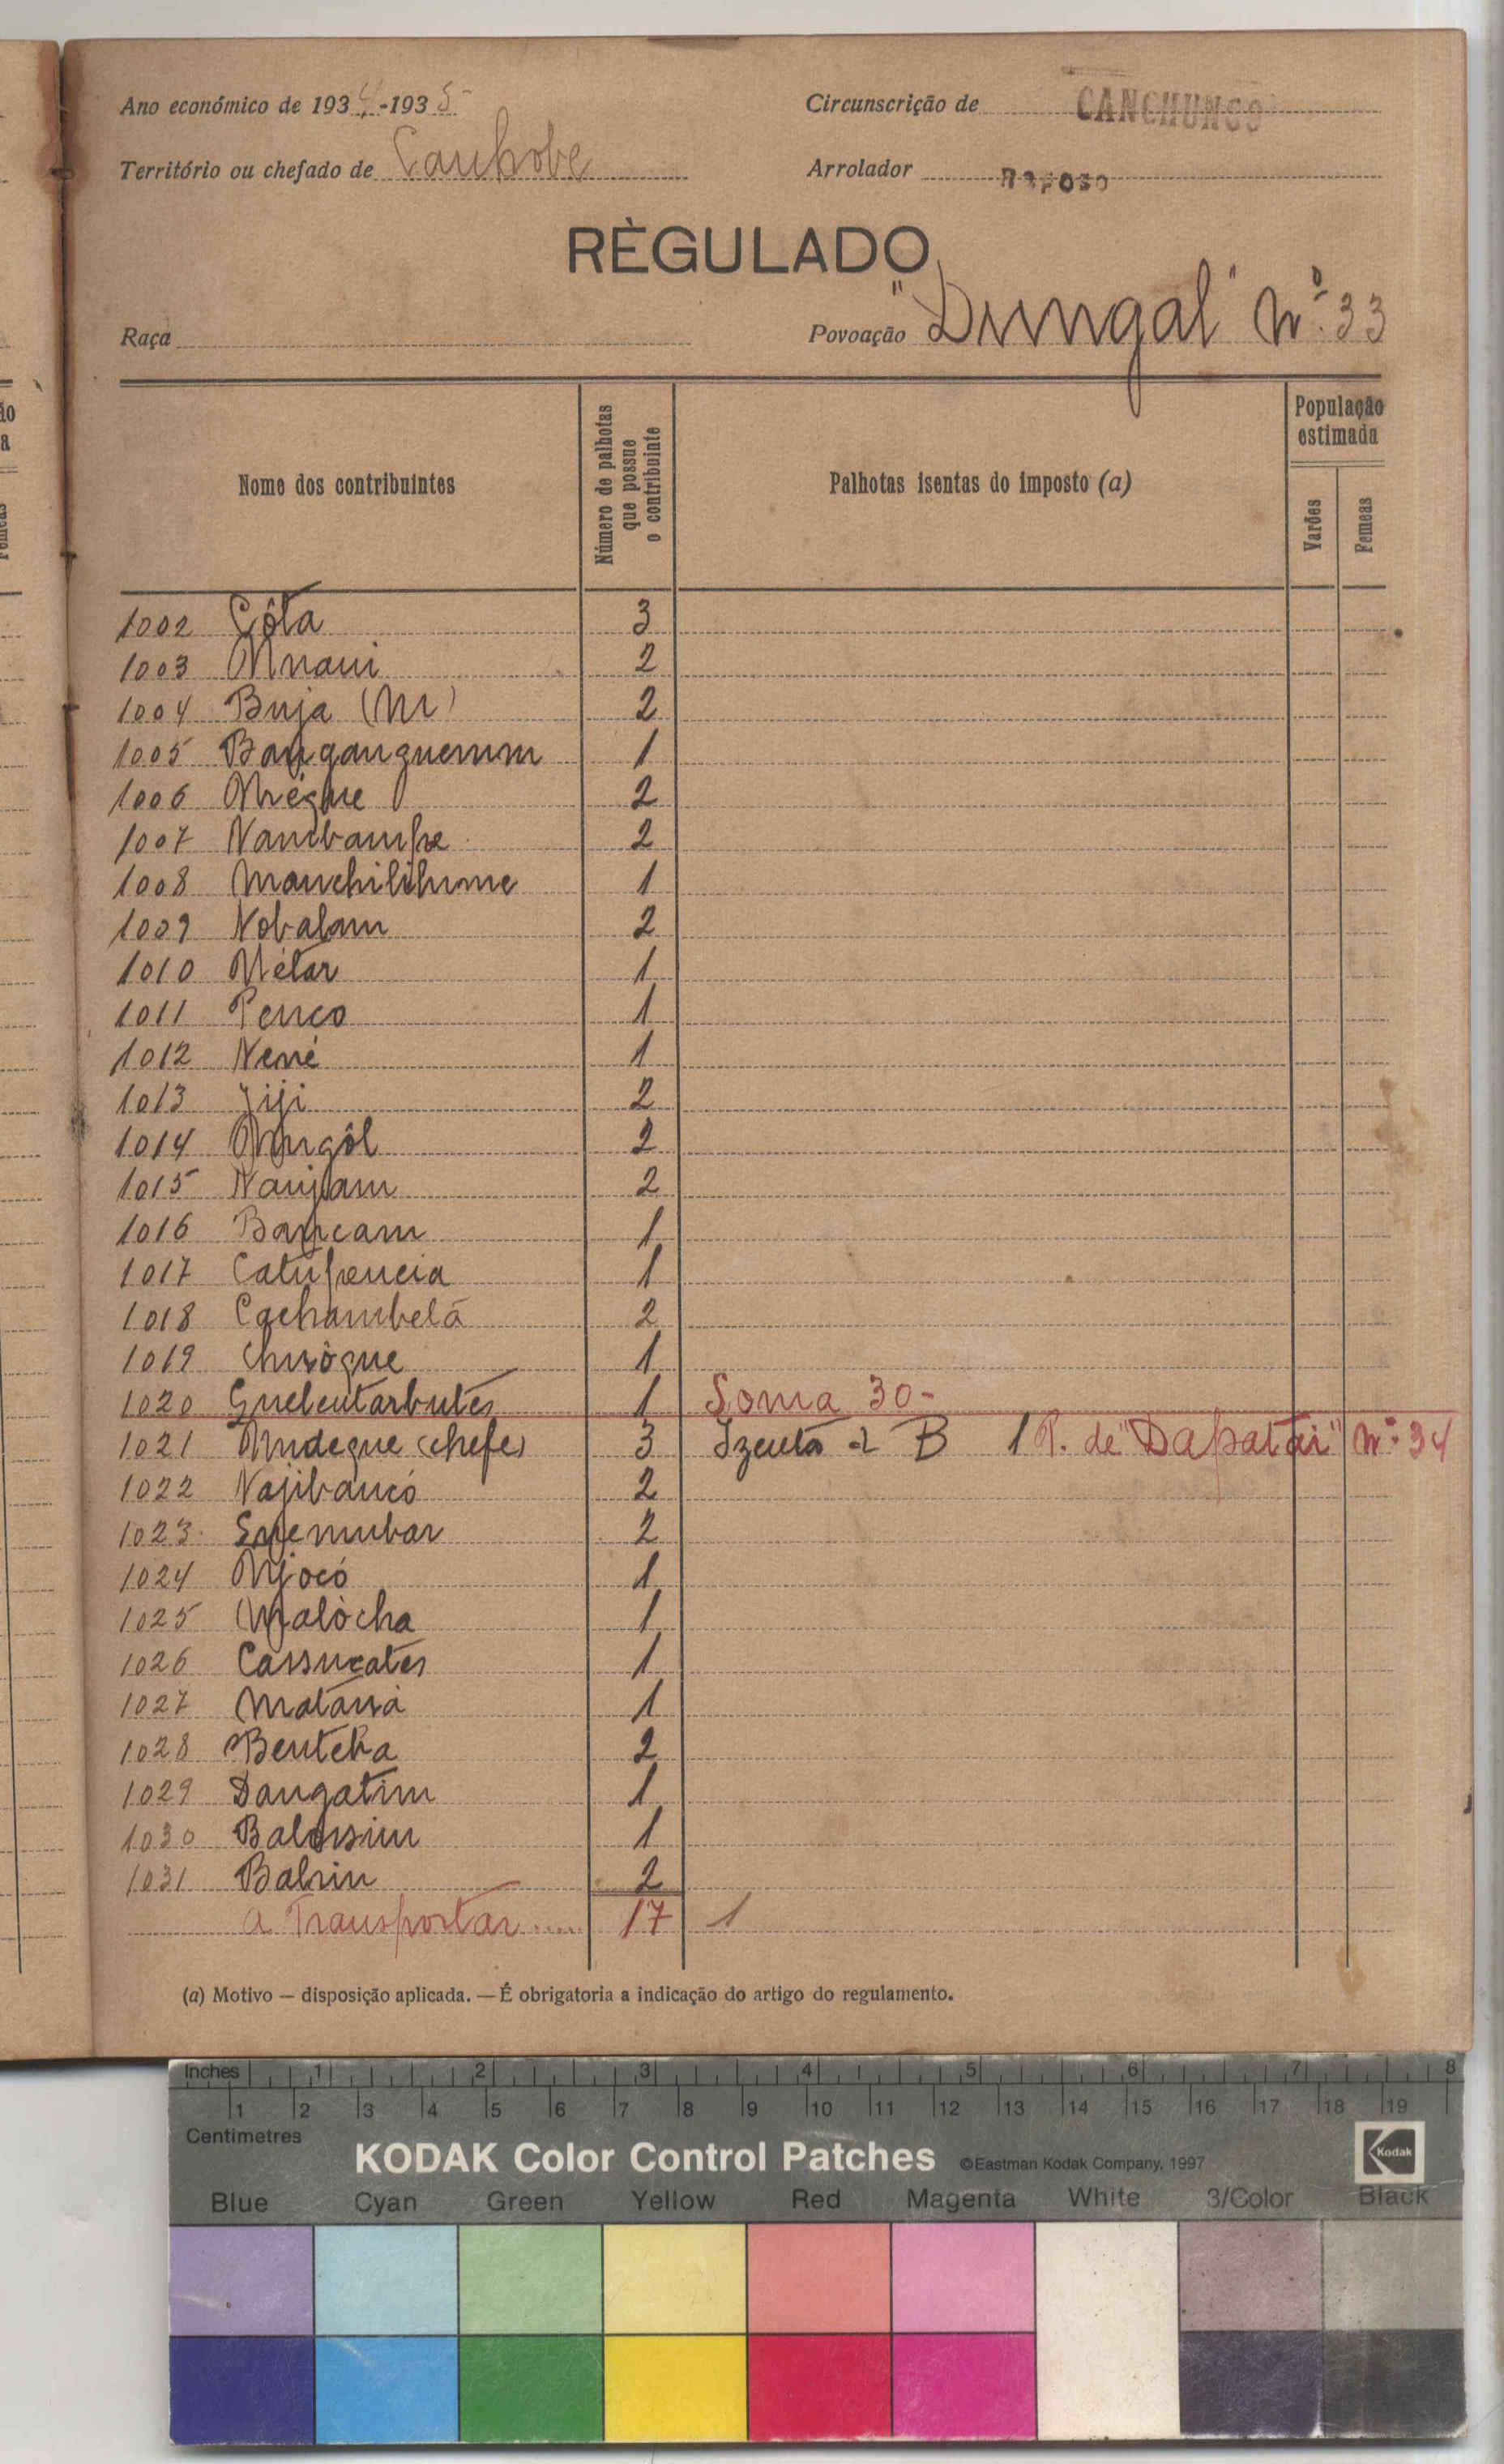 Ano económico de 1934-1935
Circunscrição de CANCHUNGO
Território ou chefado de Canhobe
Arrolador Raposo
RÈGULADO
Raça
Povoação "Dungal" Nº 33
Nome dos contribuintes
Número de palhotas que possue o contribuinte
Palhotas isentas do imposto (a)
População estimada
Varões
Femeas
1002 Côta 3
1003 2
1004 Buja (M) 2
1005 1
1006 2
1007 Nambampe 2
1008 Manchilihume 1
1009 Nobalam 2
1010 Métar 1
1011 Penco 1
1012 Nené 1
1013 Jiji 2
1014 2
1015 Nanjam 2
1016 Bancam 1
1017 Catupencia 1
1018 Cachambelã 2
1019 1
1020 1 Soma 30-
1021 (chefe) 3 Izenta 2 B 1 P. de "Dapatai" Nº 34
1022 Najibancó 2
1023 2
1024 1
1025 Malòcha 1
1026 Cassucates 1
1027 1
1028 Benteba 2
1029 Dangatim 1
1030 1
1031 Balrin 2
A Transportar..... 17 1
(a) Motivo — disposição aplicada. — É obrigatoria a indicação do artigo do regulamento.
Inches 1 2 3 4 5 6 7 8
1 2 3 4 5 6 7 8 9 10 11 12 13 14 15 16 17 18 19
Centimetres
KODAK Color Control Patches ©Eastman Kodak Company, 1997 Kodak
Blue Cyan Green Yellow Red Magenta White 3/Color Black